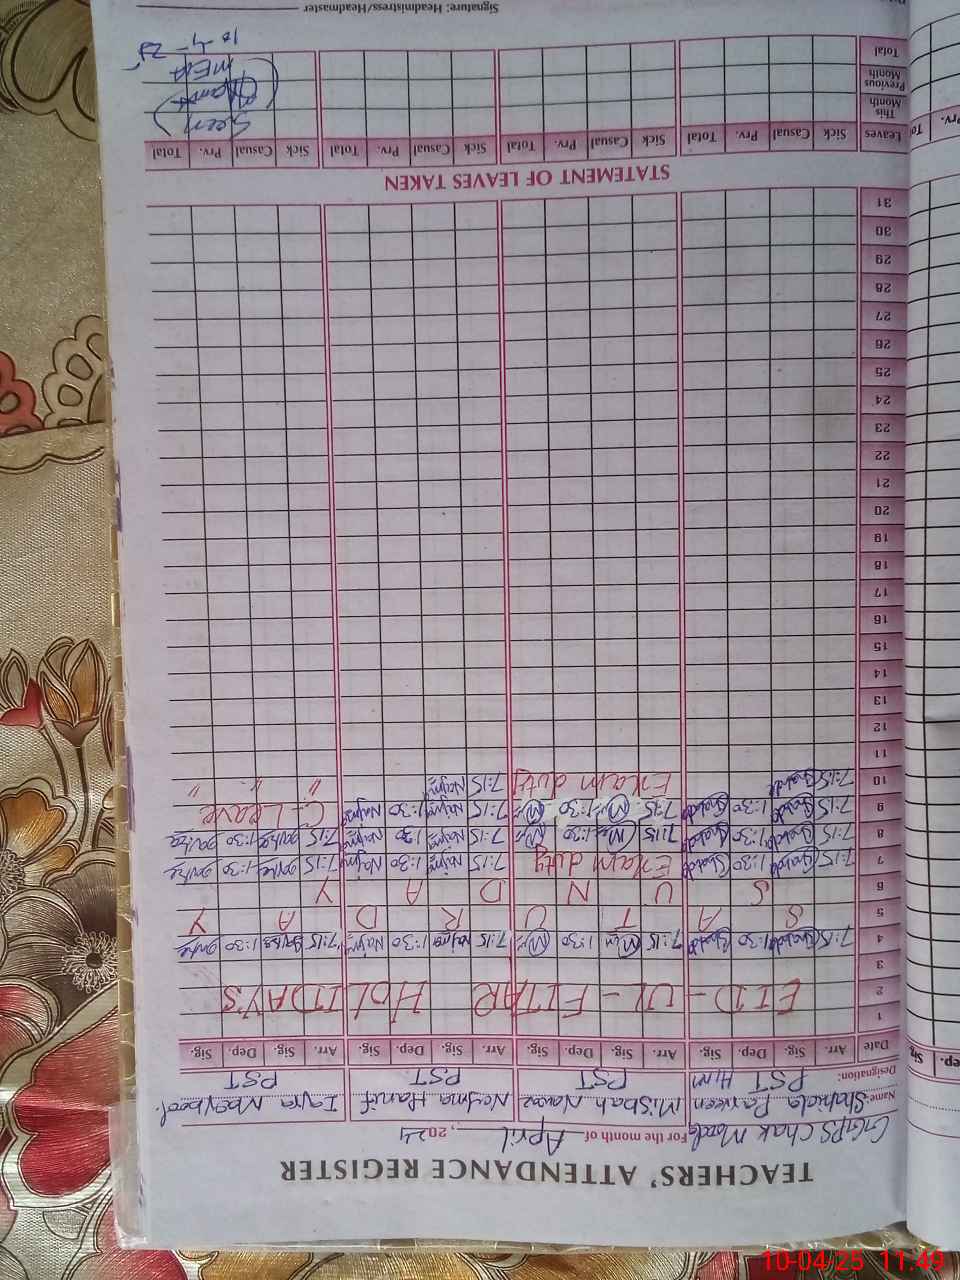 TEACHERS' ATTENDANCE REGISTER
GGPS Chak For the month of April, 2024
Name: Shahida Parveen Misbah Nawaz Najma Hanif Iqra
Designation: PST H/M PST PST PST
Date Arr. Sig. Dep. Sig. Arr. Sig. Dep. Sig. Arr. Sig. Dep. Sig. Arr. Sig. Dep. Sig.
1
2 EID-UL-FITAR HOLIDAYS
3
4 7:15 1:30 7:15 1:30 7:15 Najma 1:30 Najma 7:15 1:30
5 S A T U R D A Y
6 S U N D A Y
7 7:15 1:30 Exam duty 7:15 Najma 1:30 Najma 7:15 1:30
8 7:15 1:30 7:15 1:30 7:15 Najma 1:30 Najma 7:15 1:30
9 7:15 1:30 7:15 1:30 7:15 Najma 1:30 Najma C-Leave
10 7:15 Exam duty 7:15 Najma " " "
11
12
13
14
15
16
17
18
19
20
21
22
23
24
25
26
27
28
29
30
31
STATEMENT OF LEAVES TAKEN
Leaves Sick Casual Prv. Total Sick Casual Prv. Total Sick Casual Prv. Total Sick Casual Prv. Total
This Month
Previous Month
Total
Seen
MEA
10-4-25
Signature: Headmistress/Headmaster
10-04-25 11:49